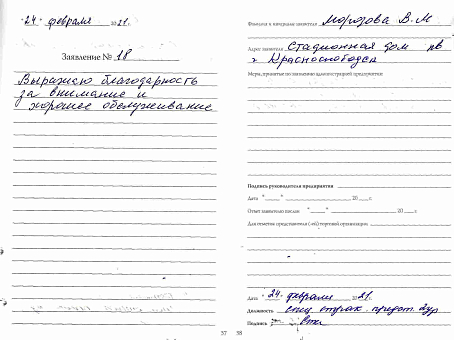 "24" февраля 2021 г.
Заявление № 18
Выражаю благодарность
за внимание и
хорошее обслуживание
37
Фамилия и инициалы заявителя Морозова В.М
Адрес заявителя Стационная дом кв
г Краснослободск
Меры, принятые по заявлению администрацией предприятия:
Подпись руководителя предприятия
Дата " " 20 г.
Ответ заявителю послан " " 20 г.
Для отметок представителя (-ей) торговой организации
Дата "24" февраля 2021 г.
Должность спец страх.
Подпись
38